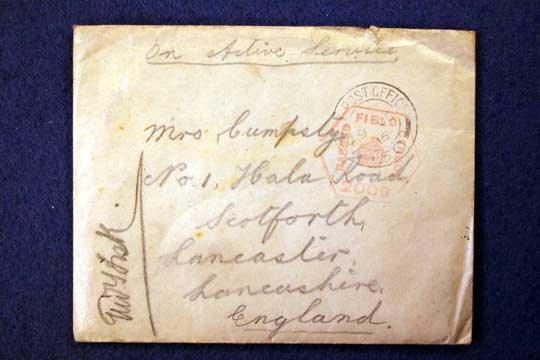 On Active Service
POST OFFICE
FIELD
PASSED
2009
Mrs Cumpsty,
No 1, Hala Road,
Scotforth,
Lancaster,
Lancashire,
England.